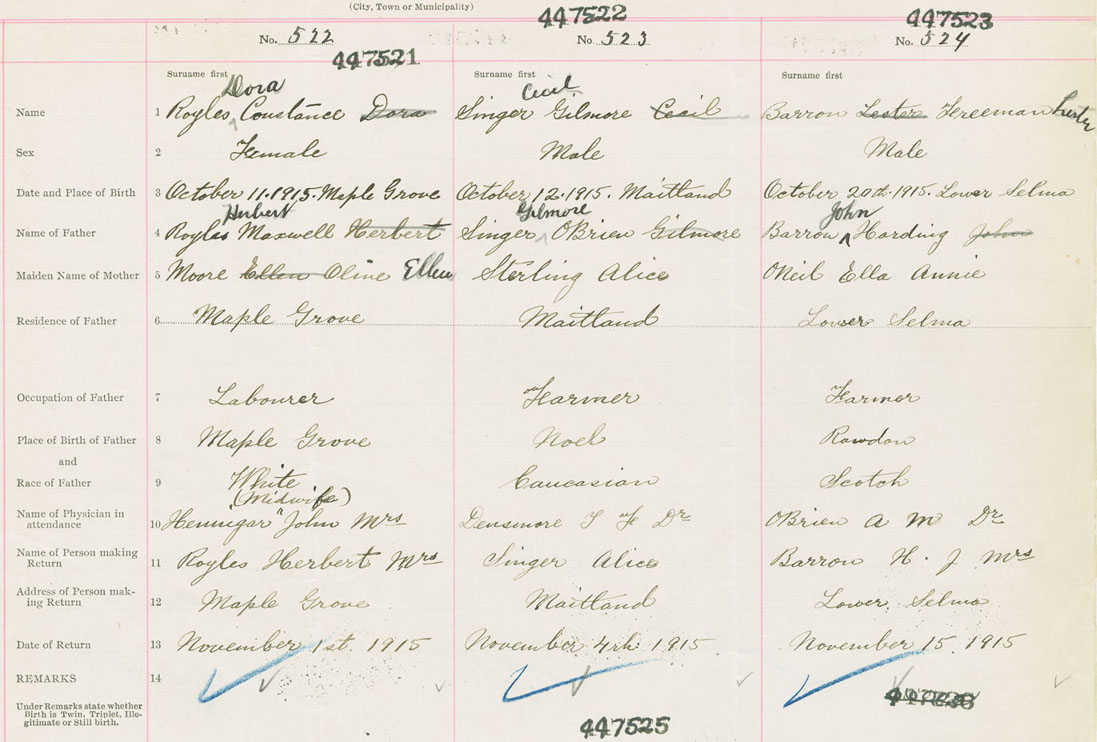 (City, Town or Municipality)
447522 447523
No. 522 No. 523 No. 524
447521
Surname first Surname first Surname first
Dora Cecil
Name 1 Royles Constance Dora Singer Gilmore Cecil Barron Lester Freeman Lester
Sex 2 Female Male Male
Date and Place of Birth 3 October 11.1915. Maple Grove October 12.1915. Maitland October 20th.1915. Lower Selma
Herbert Gilmore John
Name of Father 4 Royles Maxwell Herbert Singer OBrien Gilmore Barron Harding John
Maiden Name of Mother 5 Moore Ellen Olive Ellen Sterling Alice ONeil Ella Annie
Residence of Father 6 Maple Grove Maitland Lower Selma
Occupation of Father 7 Labourer Farmer Farmer
Place of Birth of Father 8 Maple Grove Noel Rawdon
and
Race of Father 9 White Caucasian Scotch
(Midwife)
Name of Physician in
attendance 10 Hennigar "John Mrs Densmore T F Dr OBrien A M Dr
Name of Person making
Return 11 Royles Herbert Mrs Singer Alice Barron H. J Mrs
Address of Person mak-
ing Return 12 Maple Grove Maitland Lower Selma
Date of Return 13 November 1st. 1915 November 4th 1915 November 15. 1915
REMARKS 14
Under Remarks state whether
Birth is Twin, Triplet, Ille-
gitimate or Still birth.
447525